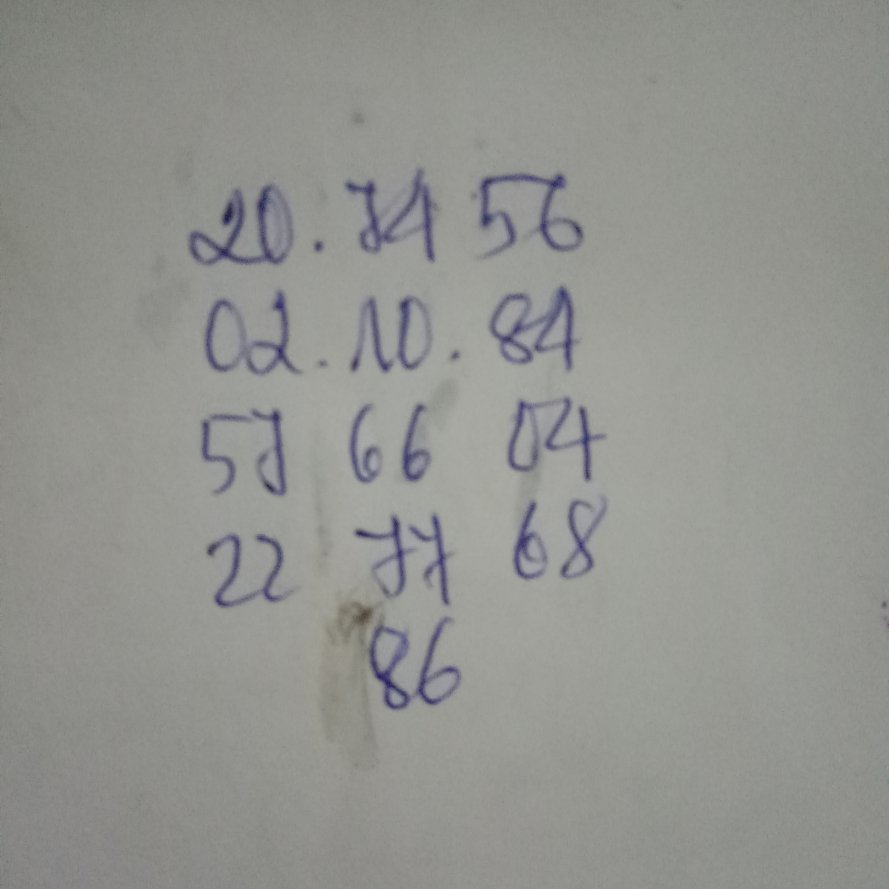 20. 74 56
02. 10. 84
57 66 04
22 77 68
86